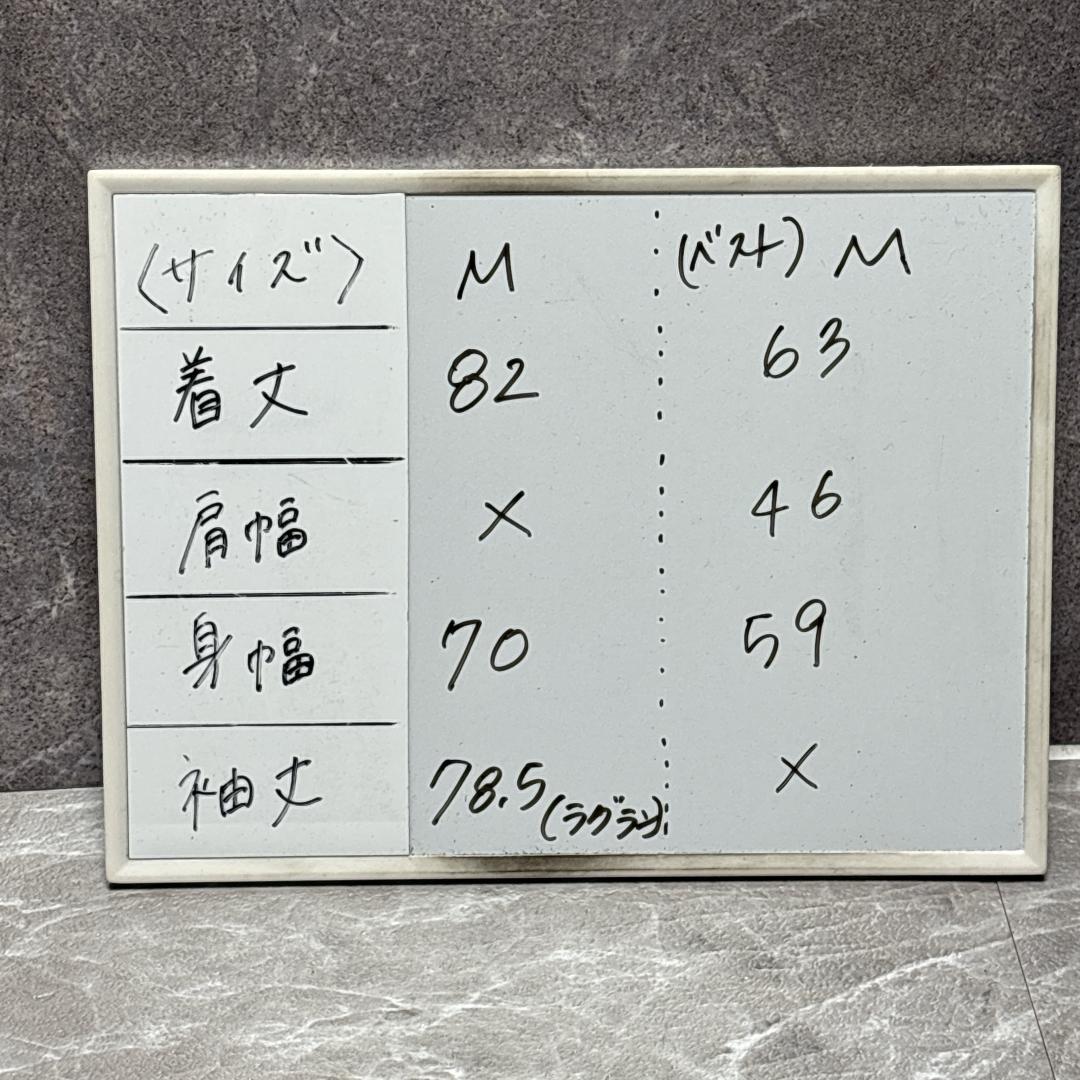 〈サイズ〉 M (ベスト) M
着丈 82 63
肩幅 × 46
身幅 70 59
袖丈 78.5(ラグラン) ×